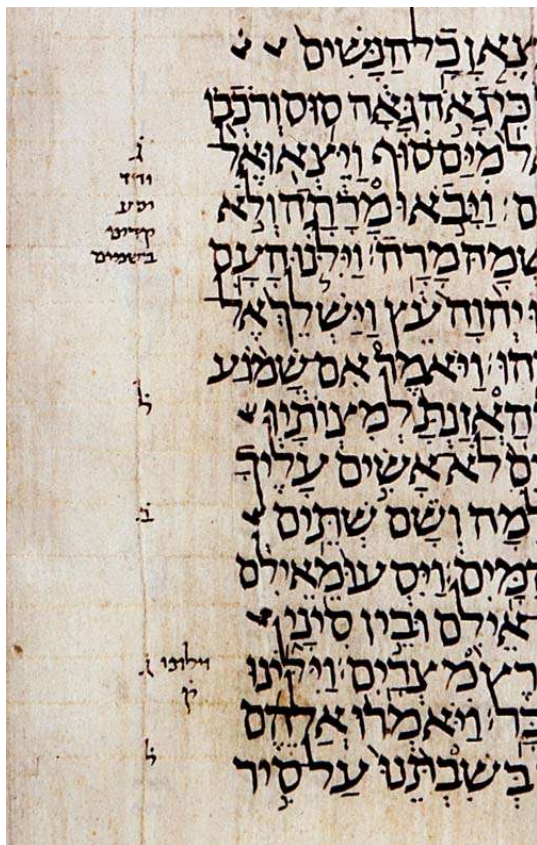 צֶאןָ כָל הַנָּשִׁים
כִּי גָאֹה גָּאָה סוּס וְרֹכְבוֹ
אֵל מִיַּם סוּף וַיֵּצְאוּ אֶל
ם וַיָּבֹאוּ מָרָתָה וְלֹא
שְׁמָהּ מָרָה וַיִּלֹּנוּ הָעָם
ו יְהוָה עֵץ וַיַּשְׁלֵךְ אֶל
הוּ וַיֹּאמֶר אִם שָׁמוֹעַ
הַאֲזַנְתָּ לְמִצְוֺתָיו
ים לֹא אָשִׂים עָלֶיךָ
מָה וְשָׁם שְׁתֵּים
הַמָּיִם וַיִּסְעוּ מֵאֵילִם
אֵילִם וּבֵין סִינָי
רֶץ מִצְרָיִם וַיִּלִּינוּ
בָּר וַיֹּאמְרוּ אֲלֵהֶם
בְּשִׁבְתֵּנוּ עַל סִיר
ג
בשמים
ל
ב
וילונו ג
ק
ל